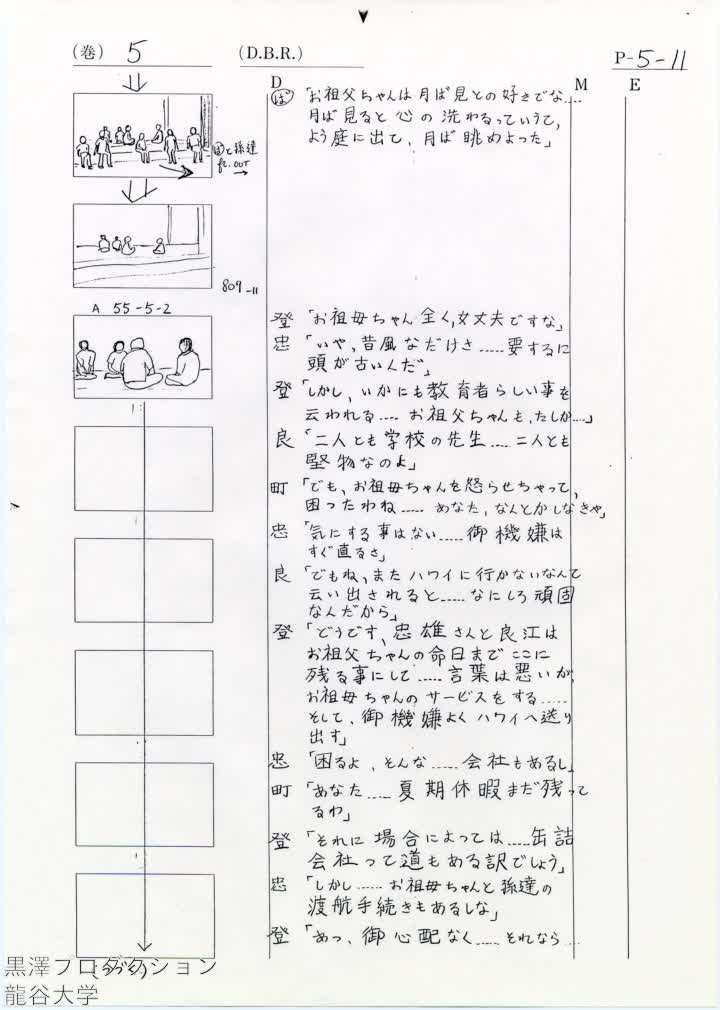 (巻) 5
(D.B.R.)
P-5-11
D
M
E
ば 「お祖父ちゃんは月ば見との好きでな....
月ば見ると心の洗わるっていうて、
よう庭に出て、月ば眺めよった」
ばと孫達
fr. OUT
809-11
A 55-5-2
登 「お祖母ちゃん全く、丈夫ですな」
忠 「いや、昔風なだけさ.....要するに
頭が古いんだ」
登 「しかし、いかにも教育者らしい事を
云われる.... お祖父ちゃんも、たしか....」
良 「二人とも学校の先生.... 二人とも
堅物なのよ」
町 「でも、お祖母ちゃんを怒らせちゃって、
困ったわね..... あなた、なんとかしなきゃ」
忠 「気にする事はない.....御機嫌は
すぐ直るさ」
良 「でもね、またハワイに行かないなんて
云い出されると.....なにしろ頑固
なんだから」
登 「どうです、忠雄さんと良江は
お祖父ちゃんの命日までここに
残る事にして.....言葉は悪いが、
お祖母ちゃんのサービスをする.....
そして、御機嫌よくハワイへ送り
出す」
忠 「困るよ、そんな.....会社もあるし」
町 「あなた.....夏期休暇まだ残って
るわ」
登 「それに場合によっては.....缶詰
会社って道もある訳でしょう」
忠 「しかし.....お祖母ちゃんと孫達の
渡航手続きもあるしな」
登 「あっ、御心配なく.....それなら...
(つづく)
黒澤プロダクション
龍谷大学